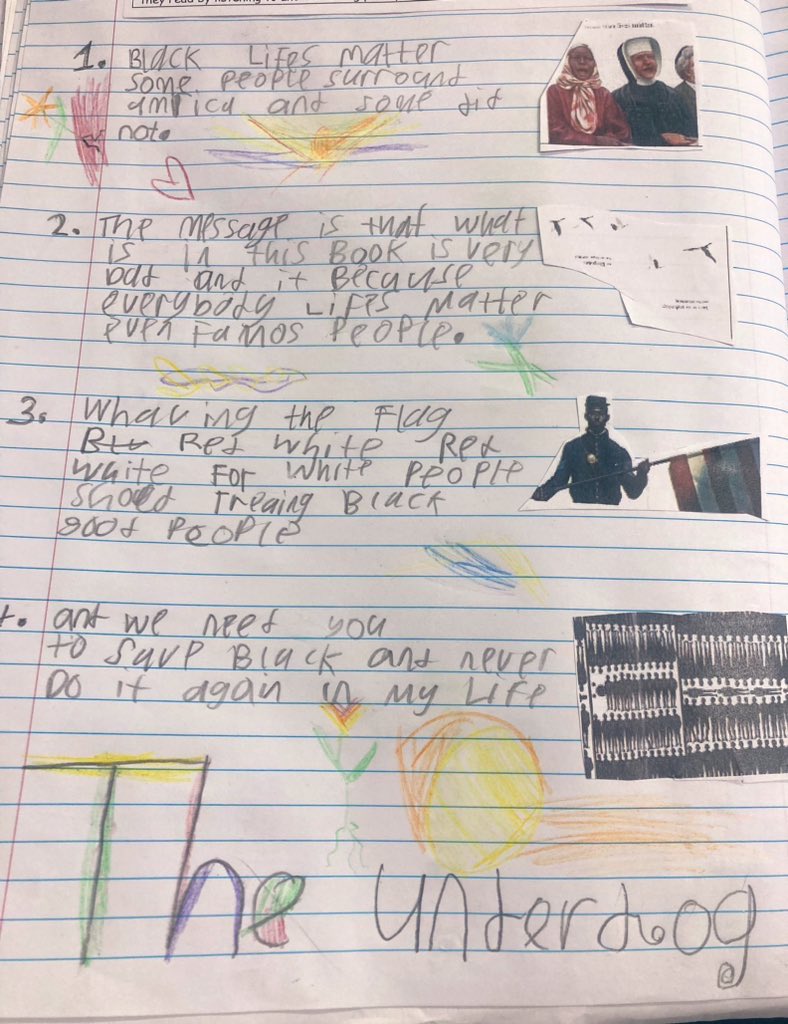 1. Black Lifes matter
some people surround
amrica and some did
not.
2. The message is that what
is in this Book is very
bad and it Because
everybody Lifes matter
even Famos People.
3. Whaving the Flag
Red white Red
White For white People
should Treaing Black
good People
and we need you
to save Black and never
Do it again in my Life
The underdog